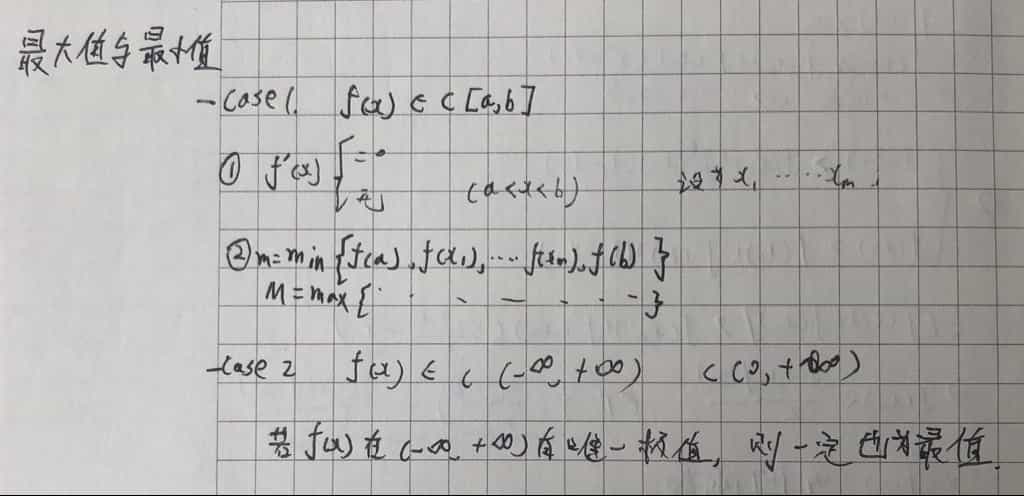 最大值与最小值
- Case 1. f(x) ∈ C[a,b]
① f'(x) { =0 不∃ (a<x<b) 设为 x₁ ····· xₘ.
② m=min {f(a), f(x₁), ···· f(xₘ), f(b) }
M = max { · · - — · · - }
- Case 2 f(x) ∈ C (-∞, +∞) C(0, +∞)
若 f(x) 在 (-∞, +∞) 有唯一极值, 则一定也为最值.